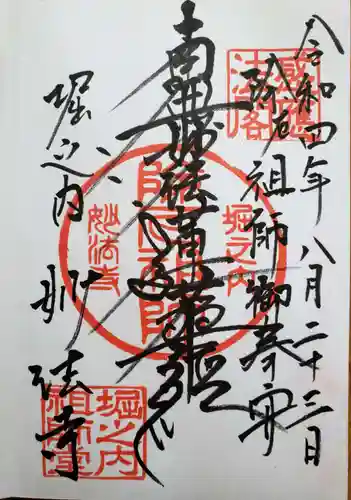 令和四年八月二十三日
除厄祖師御奉安
南無妙法蓮華經
堀之内
妙法寺
感應
法閣
堀之内
妙法寺
堀之内
祖師堂